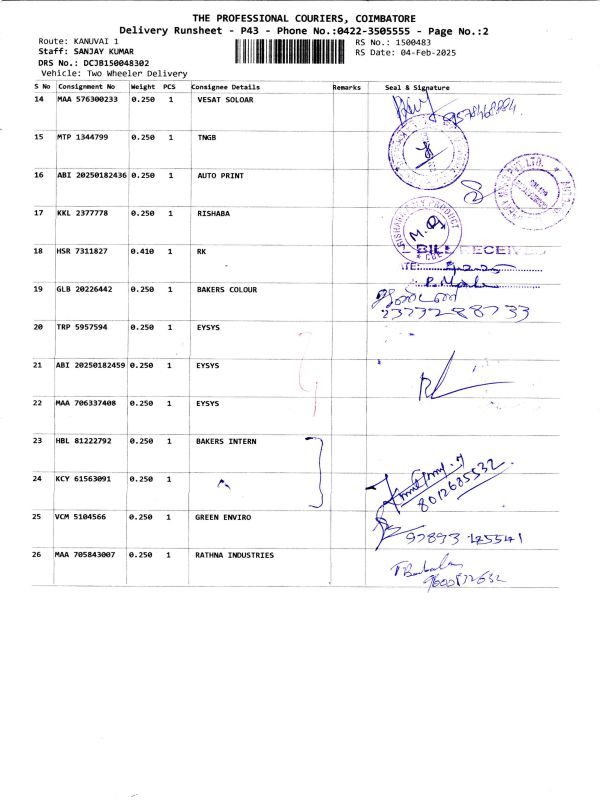 THE PROFESSIONAL COURIERS, COIMBATORE
Delivery Runsheet - P43 - Phone No.:0422-3505555 - Page No.:2
Route: KANUVAI 1
RS No.: 1500483
Staff: SANJAY KUMAR
RS Date: 04-Feb-2025
DRS No.: DCJB150048302
Vehicle: Two Wheeler Delivery
S No Consignment No Weight PCS Consignee Details Remarks Seal & Signature
14 MAA 576300233 0.250 1 VESAT SOLOAR
15 MTP 1344799 0.250 1 TNGB
16 ABI 20250182436 0.250 1 AUTO PRINT
17 KKL 2377778 0.250 1 RISHABA
18 HSR 7311827 0.410 1 RK
BILL RECEIVED
19 GLB 20226442 0.250 1 BAKERS COLOUR
20 TRP 5957594 0.250 1 EYSYS
21 ABI 20250182459 0.250 1 EYSYS
22 MAA 706337408 0.250 1 EYSYS
23 HBL 81222792 0.250 1 BAKERS INTERN
24 KCY 61563091 0.250 1
8012685532
25 VCM 5104566 0.250 1 GREEN ENVIRO
26 MAA 705843007 0.250 1 RATHNA INDUSTRIES